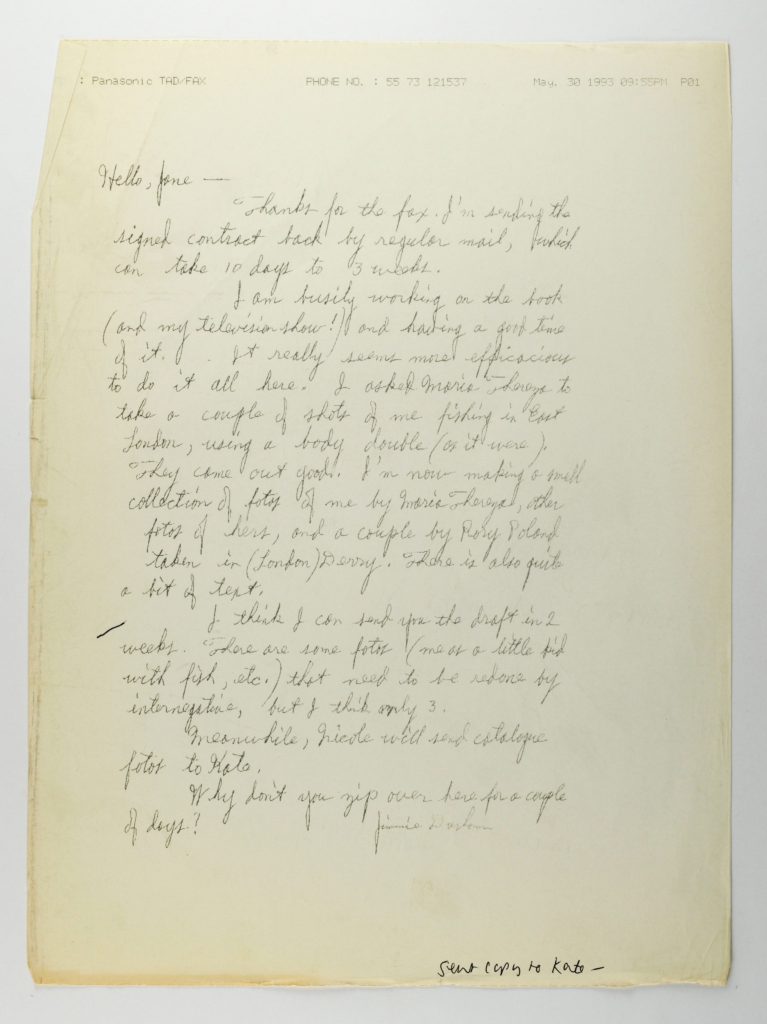 : Panasonic TAD/FAX PHONE NO. : 55 73 121537 May. 30 1993 09:55PM P01
Hello, Jane —
Thanks for the fax. I'm sending the
signed contract back by regular mail, which
can take 10 days to 3 weeks.
I am busily working on the book
(and my television show!) and having a good time
of it. It really seems more efficacious
to do it all here. I asked Maria Thereza to
take a couple of shots of me fishing in East
London, using a body double (as it were).
They came out good. I'm now making a small
collection of fotos of me by Maria Thereza, other
fotos of hers, and a couple by Rory Poland
taken in (London)Derry. There is also quite
a bit of text.
I think I can send you the draft in 2
weeks. There are some fotos (me as a little kid
with fish, etc.) that need to be redone by
internegative, but I think only 3.
Meanwhile, Nicole will send catalogue
fotos to Kate.
Why don't you zip over here for a couple
of days?
Jimmie Durham
Sent copy to Kate —